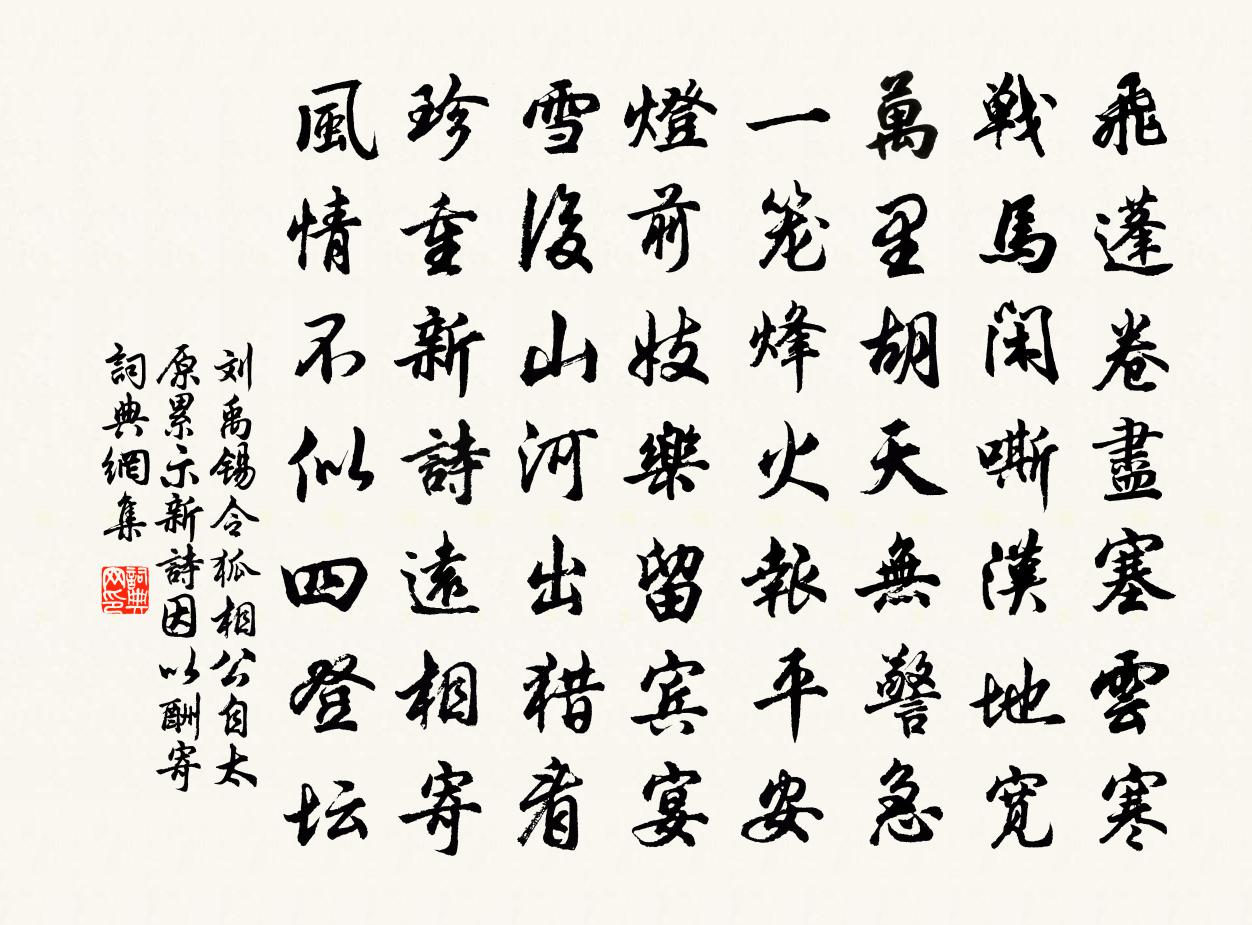 飛蓬卷盡塞雲寒
戦馬閑嘶漢地寬
萬里胡天無警急
一笼烽火報平安
燈前妓樂留宾宴
雪後山河出猎看
珍重新詩遠相寄
風情不似四登坛
刘禹锡令狐相公自太
原累示新詩因以酬寄
詞典網集
詞典